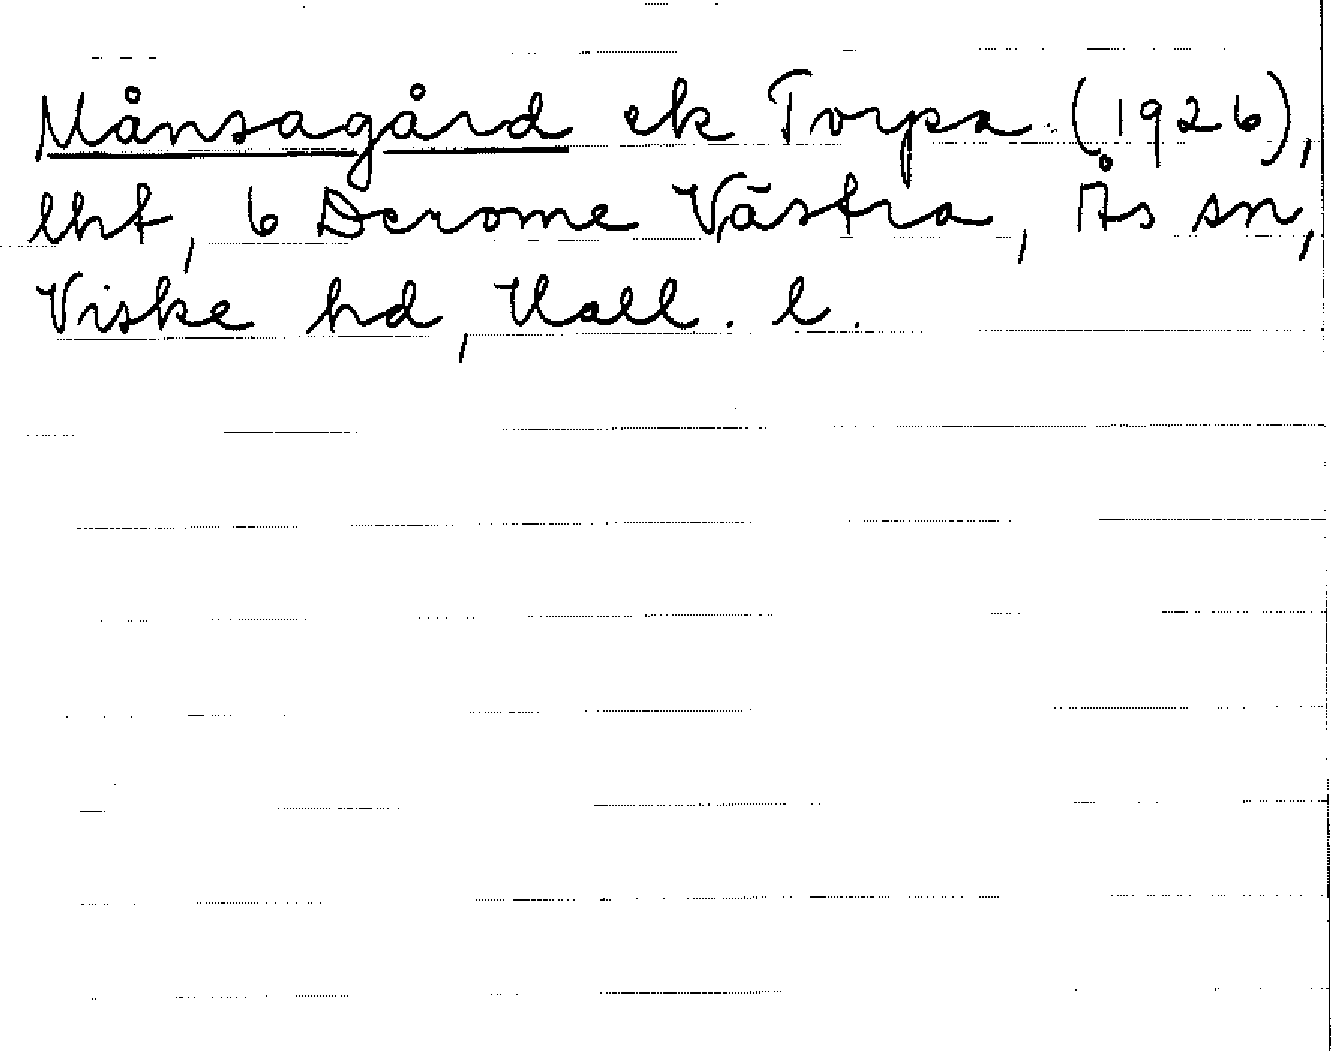 Månsagård ek Torpa (1926),
lht, 6 Derome Västra, Ås sn,
Viske hd, Hall. l.